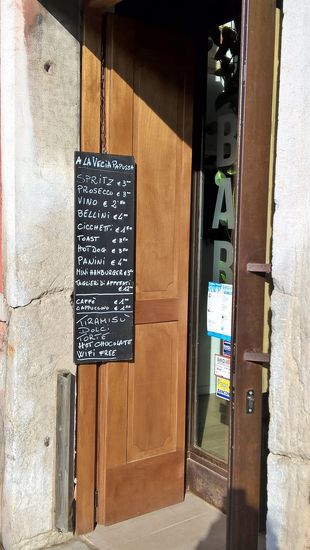 A LA VECIA PAPUSSA
SPRITZ € 3⁰⁰
PROSECCO € 3⁰⁰
VINO € 2
BELLINI € 4⁰⁰
CICCHETTI €
TOAST €
HOT DOG €
PANINI € 4⁰⁰
MINI HAMBURGER € 3⁰⁰
TAGLIERI DI AFFETTATI
€ 12⁰⁰
CAFFÈ € 1
CAPPUCCINO € 1
TIRAMISÙ
DOLCI
TORTE
HOT CHOCOLATE
WIFI FREE
BAR